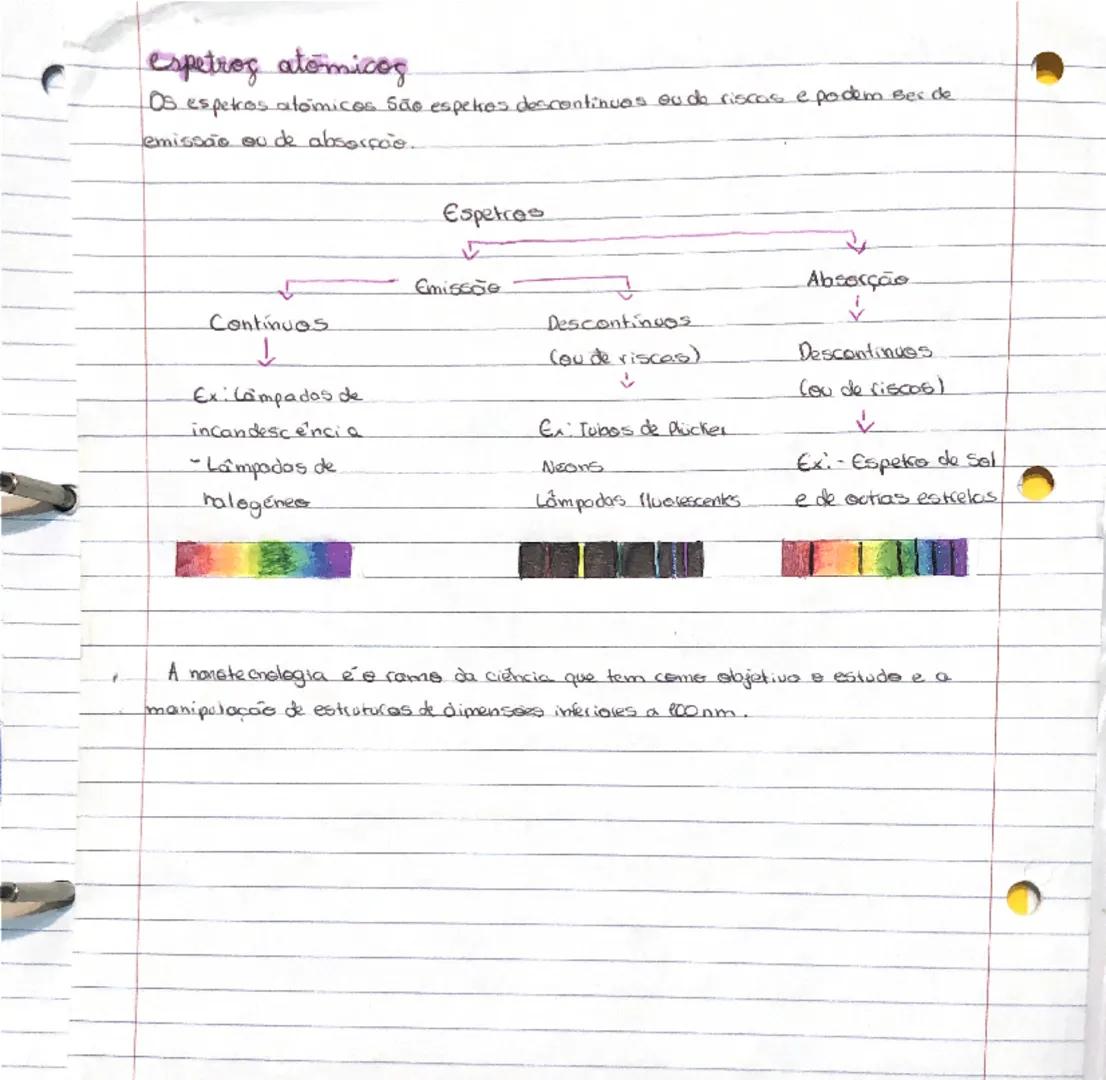 espetros atómicos
Os espetros atómicos são espetros descontínuos ou de riscas e podem ser de
emissão ou de absorção.
Espetros
Emissão
Absorção
Contínuos
Descontínuos
(ou de riscas)
Descontínuos
(ou de riscas)
Ex: Lâmpadas de
incandescência
- Lâmpadas de
halogéneo
Ex: Tubos de Plücker
Neons
Lâmpadas fluorescentes
Ex: - Espetro de Sol
e de outras estrelas
A nanotecnologia é o ramo da ciência que tem como objetivo o estudo e a
manipulação de estruturas de dimensões inferiores a 100 nm.